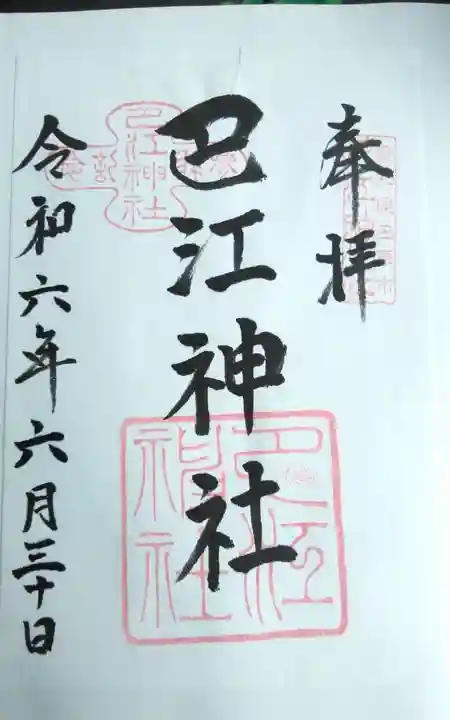 奉拝
巴江神社
令和六年六月三十日
巴江神社
巴江神社